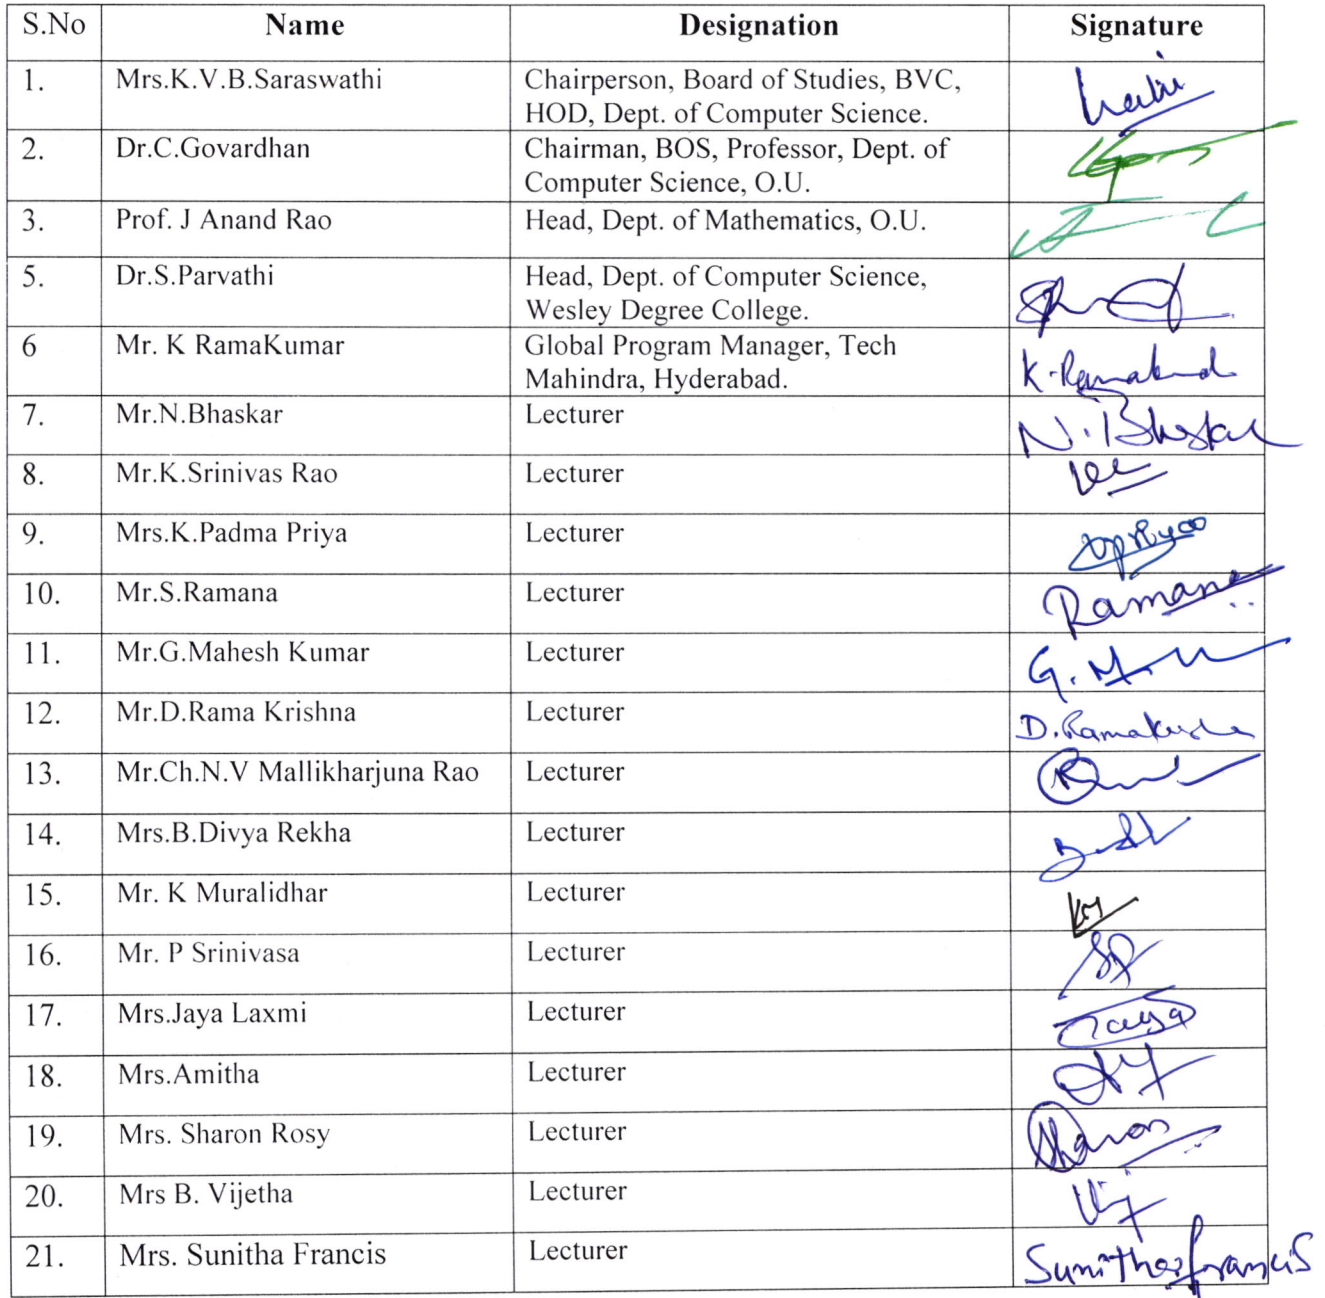 S.No Name Designation Signature
1. Mrs.K.V.B.Saraswathi Chairperson, Board of Studies, BVC,
HOD, Dept. of Computer Science.
2. Dr.C.Govardhan Chairman, BOS, Professor, Dept. of
Computer Science, O.U.
3. Prof. J Anand Rao Head, Dept. of Mathematics, O.U.
5. Dr.S.Parvathi Head, Dept. of Computer Science,
Wesley Degree College.
6 Mr. K RamaKumar Global Program Manager, Tech
Mahindra, Hyderabad.
7. Mr.N.Bhaskar Lecturer N.Bhaskar
8. Mr.K.Srinivas Rao Lecturer
9. Mrs.K.Padma Priya Lecturer
10. Mr.S.Ramana Lecturer Ramana
11. Mr.G.Mahesh Kumar Lecturer
12. Mr.D.Rama Krishna Lecturer D.Ramakrishna
13. Mr.Ch.N.V Mallikharjuna Rao Lecturer
14. Mrs.B.Divya Rekha Lecturer
15. Mr. K Muralidhar Lecturer
16. Mr. P Srinivasa Lecturer
17. Mrs.Jaya Laxmi Lecturer Jaya
18. Mrs.Amitha Lecturer
19. Mrs. Sharon Rosy Lecturer Sharon
20. Mrs B. Vijetha Lecturer
21. Mrs. Sunitha Francis Lecturer Sunitha francis